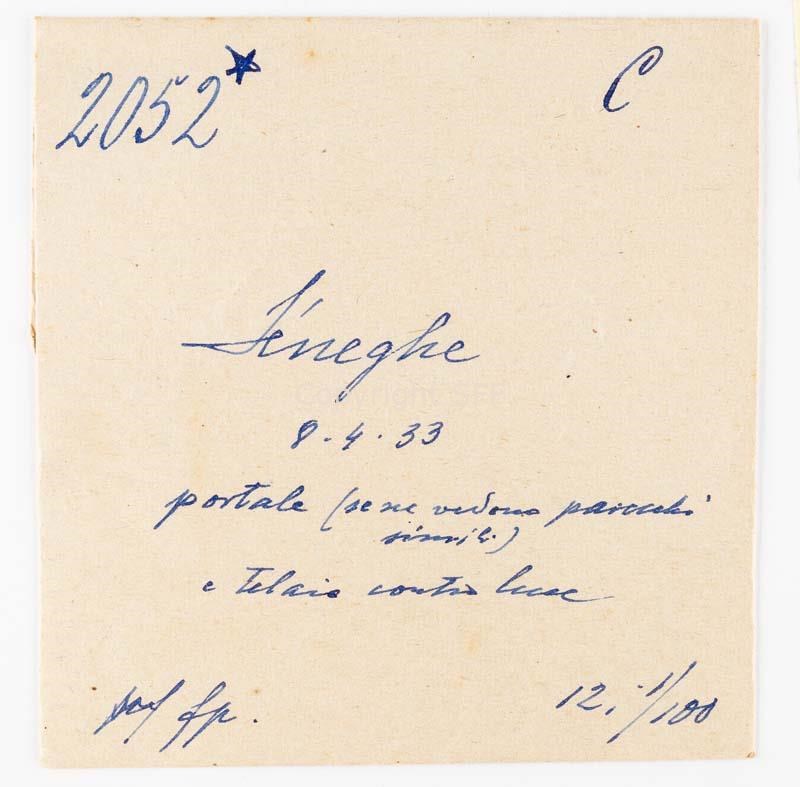 2052* C
Séneghe
8.4.33
portale (se ne vedono parecchi
simili)
e telaio contro luce
fp. 12, 1/100